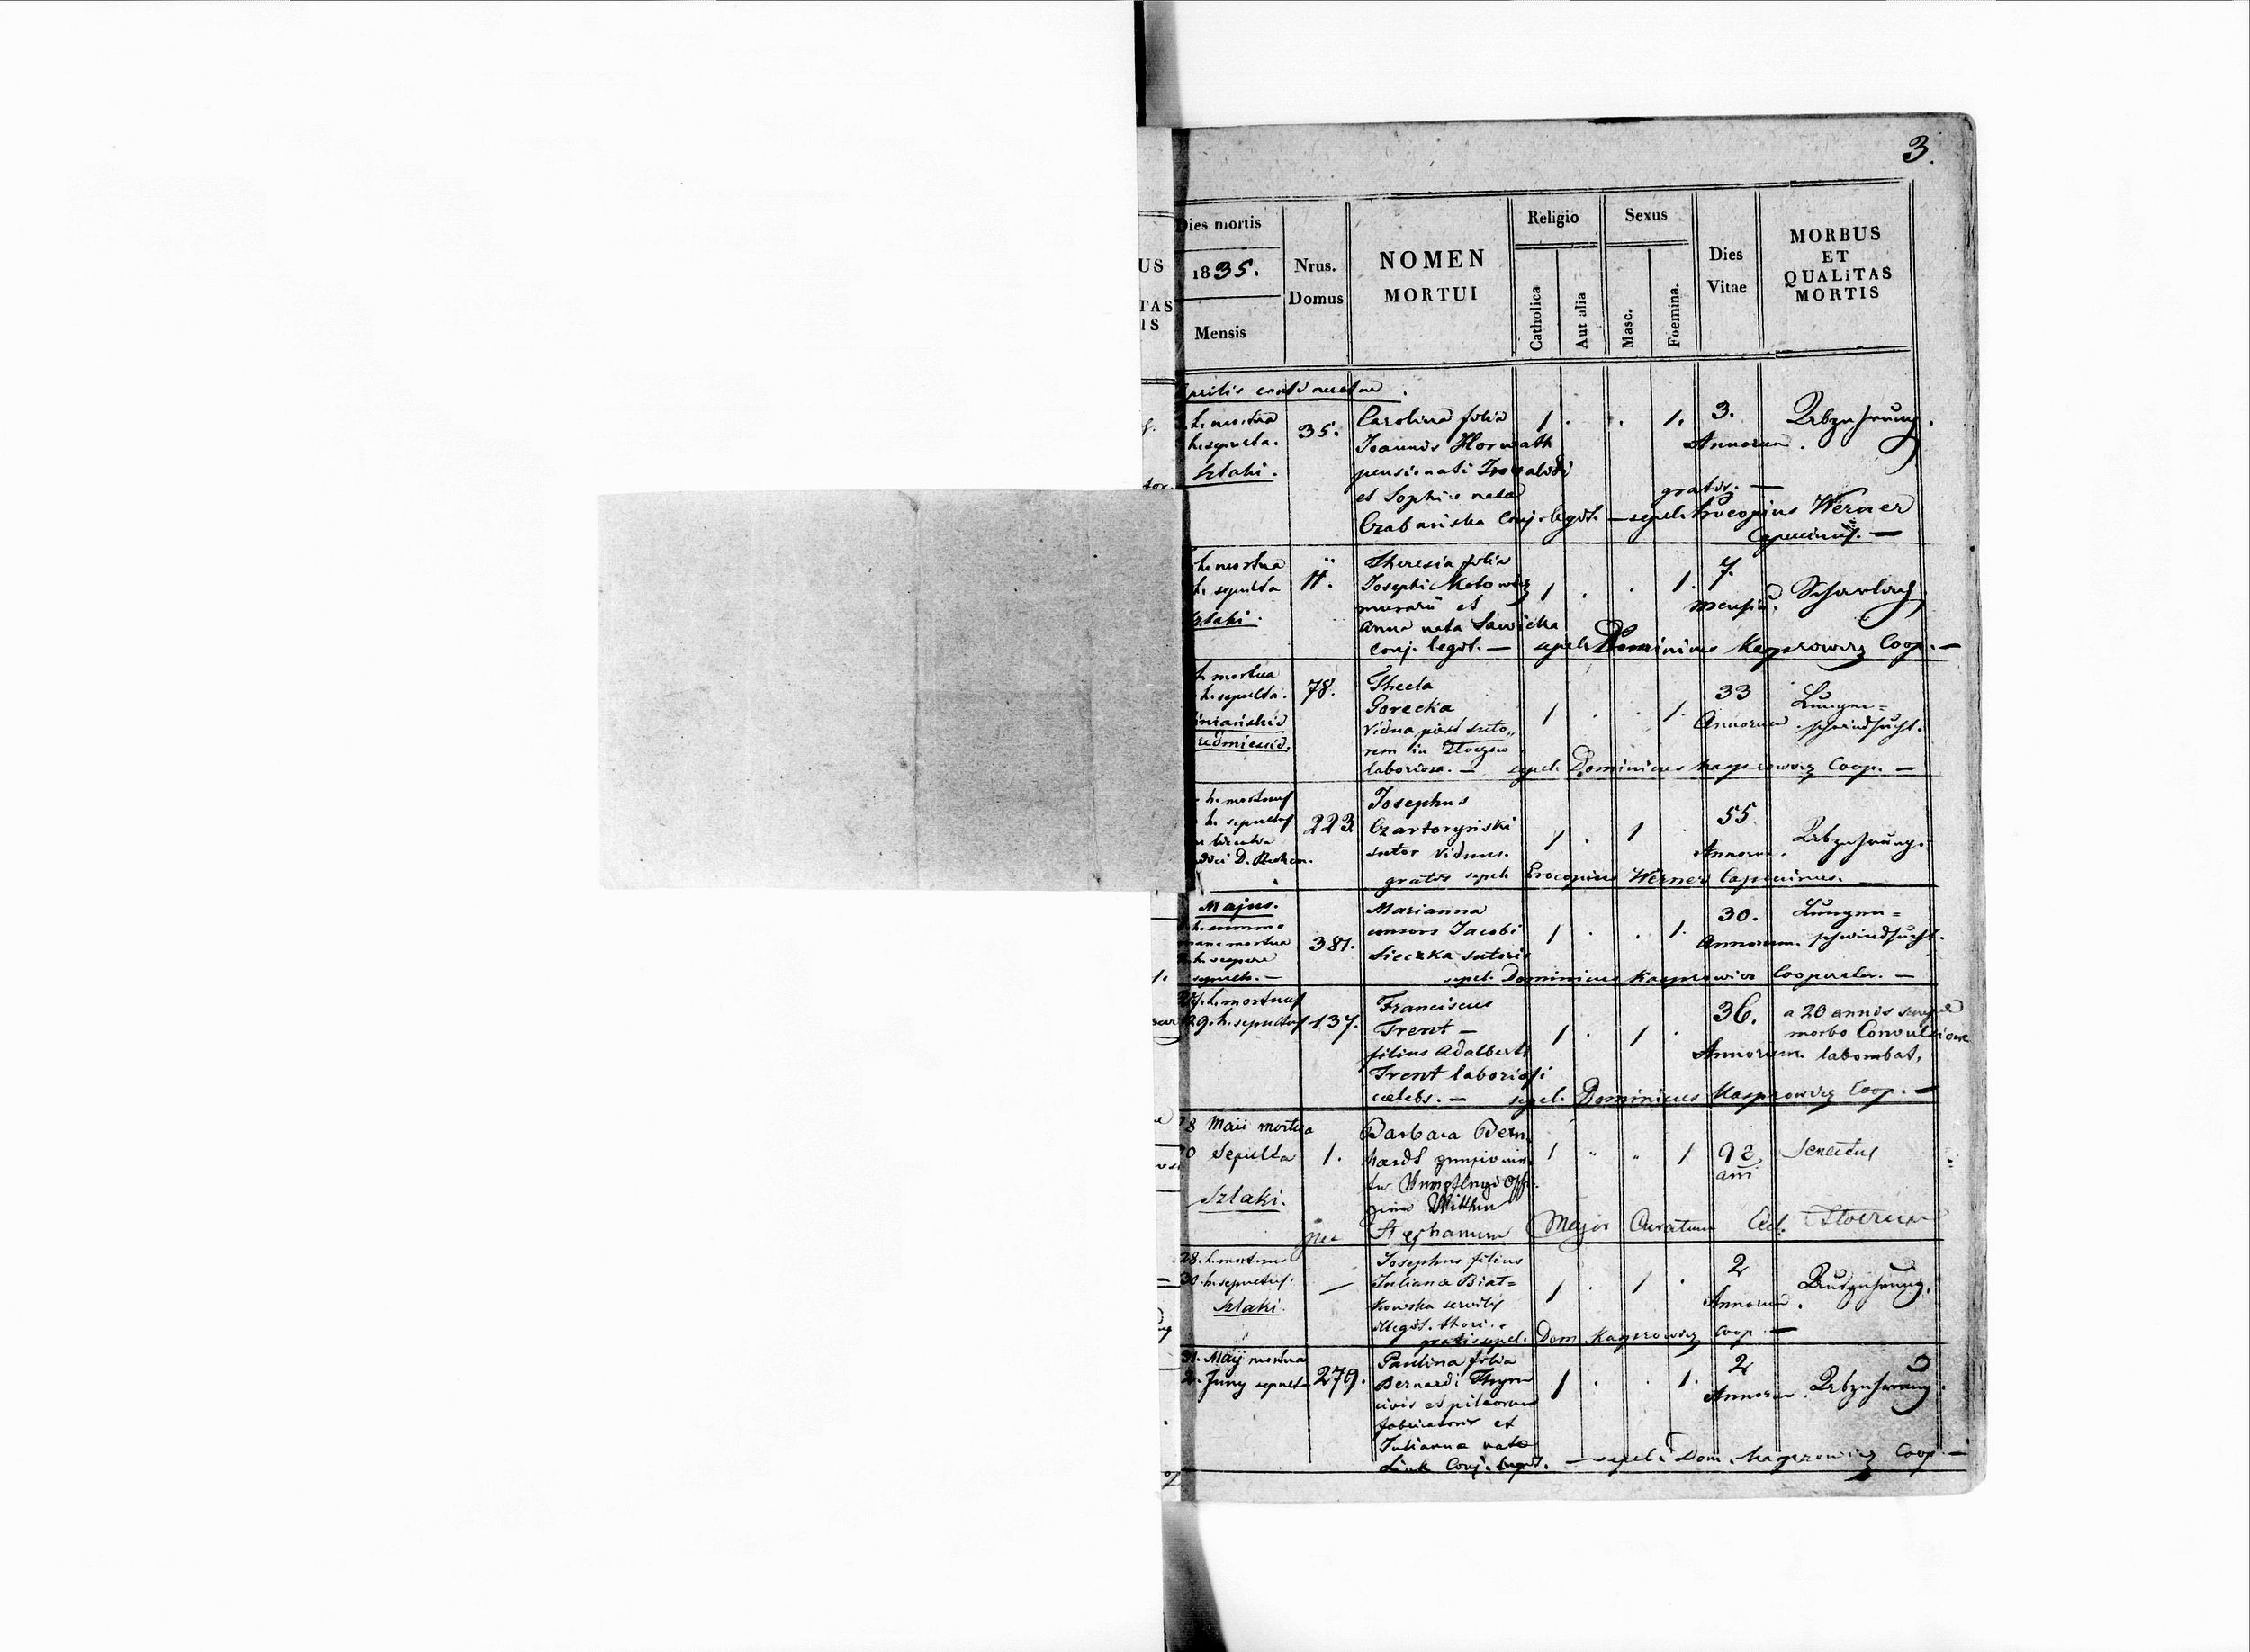 3.
Dies mortis
1835.
Mensis
Nrus.
Domus
NOMEN
MORTUI
Religio
Catholica
Aut alia
Sexus
Masc.
Foemina.
Dies
Vitae
MORBUS
ET
QUALiTAS
MORTIS
h. mortua
h. sepulta.
Szlaki.
35.
Carolina filia
Joannis Horwath
pensionati Invalidi
et Sophia nata
Czabańska Conj. legit. — sepel. Procopius Werner
Capucinus. —
gratis. —
1 . . 1.
3.
Annorum.
Abzehrung.
h. mortua
h. sepulta
Szlaki.
11.
Theresia filia
Josephi Kotowicz
murarii et
Anna nata Sawicka
conj. legit. — sepel. Dominicus Kasprowicz Coop. —
1 . . 1.
7.
mensium.
Scharlach
h. mortua
h. sepulta.
78.
Thecla
Gorecka
Vidua post suto„
rem in Zloczow
laboriosa. — sepel. Dominicus Kasprowicz Coop. —
1 . . 1.
33
Annorum
Lungen=
schwindsucht.
h. mortuus
h. sepultus
223.
Josephus
Czartoryiski
sutor viduus.
gratis sepel. Procopius Werner Capucinus. —
1 . 1 .
55.
Annorum.
Abzehrung.
Majus.
mane mortua
sepulta. —
381.
Marianna
consors Jacobi
Sieczka sutoris
sepel. Dominicus Kasprowicz Cooperator. —
1 . . 1.
30.
Annorum.
Lungen=
schwindsucht.
27. h. mortuus
29. h. sepultus
137.
Franciscus
Trent —
filius Adalberti
Trent laboriosi
caelebs. — sepel. Dominicus Kasprowicz Coop. —
1 . 1 .
36.
Annorum.
a 20 annis
morbo Convulsione
laborabat.
28 Maii mortua
30 Sepulta
Szlaki.
1.
Barbara Bern
hardt
Wittwe
per Stephanum Mejor Curatum
1 " " 1
92
ani
Senectus
28. h. mortuus
30. h. sepultus.
Szlaki.
—
Josephus filius
Juliana Biał=
kowska servilis
illegit. thori. —
gratis sepel. Dom. Kasprowicz Coop. —
1 . 1 .
2
Annorum.
Auszehrung.
31. Maij mortua
2. Juny sepulta
279.
Paulina filia
Bernardi Thym
civis et pileorum
fabricatoris et
Julianna nata
Link Conj. legit. — sepel. Dom. Kasprowicz Coop. —
1 . . 1.
2
Annorum.
Abzehrung.